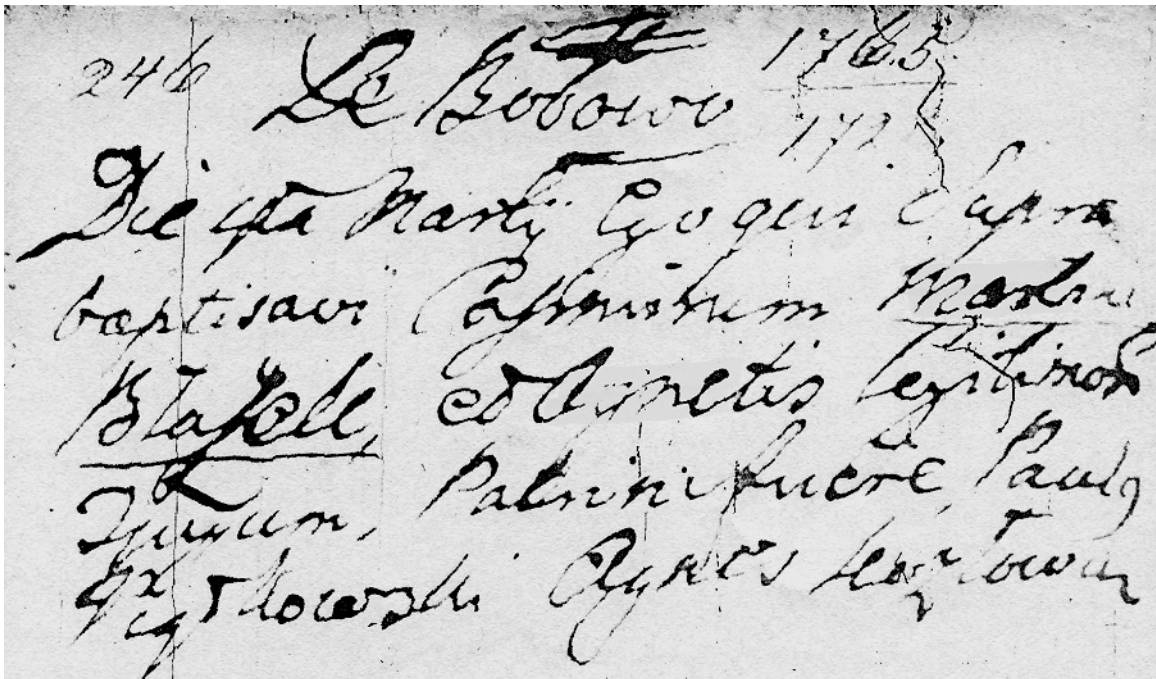 246 De Bobowo 1765
172
Die 4ta Martij Ego qui supra
baptisavi Casimirum Martini
Blaszk, et Agnetis legitimor
Jugum, Patrini fuere, Paulg
Agnes